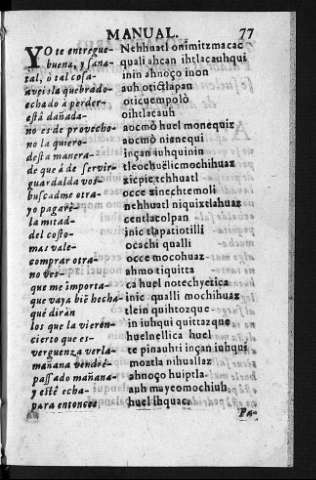 MANUAL. 77
YO te entregue- Nehhuatl onimitzmacac
buena, y sana- quali ahcan ihtlacauhqui
tal, ò tal cosa- inin ahnoço inon
quebrado- auh otictlapan
echado à perder- oticuempolò
està dañada- oihtlacauh
no es de provecho- aocmò huel monequiz
no la quiero- aocmò nicnequi
desta manera- inçan iuhquinin
de que à de servir- tleochuelicmochihuaz
guardalda vos- xicpie tehhuatl
buscadme otra- occe xinechtemoli
yo pagarè- nehhuatl niquixtlahuaz
la mitad- centlacolpan
del costo- inic tlapatiotilli
mas vale- ocachi qualli
comprar otra- occe mocohuaz
no ver- ahmo tiquitta
que me importa- ca huel notechyetica
que vaya biē hecha- inic qualli mochihuaz
què diràn- tlein quihtozque
los que la vieren- in iuhqui quittazque
cierto que es- huelnellica huel
verguenza verla- te pinauhti inçan iuhqui
mañana vendrè- moztla nihuallaz
passado mañana- ahnoço huiptla
y estè echa- auh mayeomochiuh
para entonces- huel ihquac.
Pa-